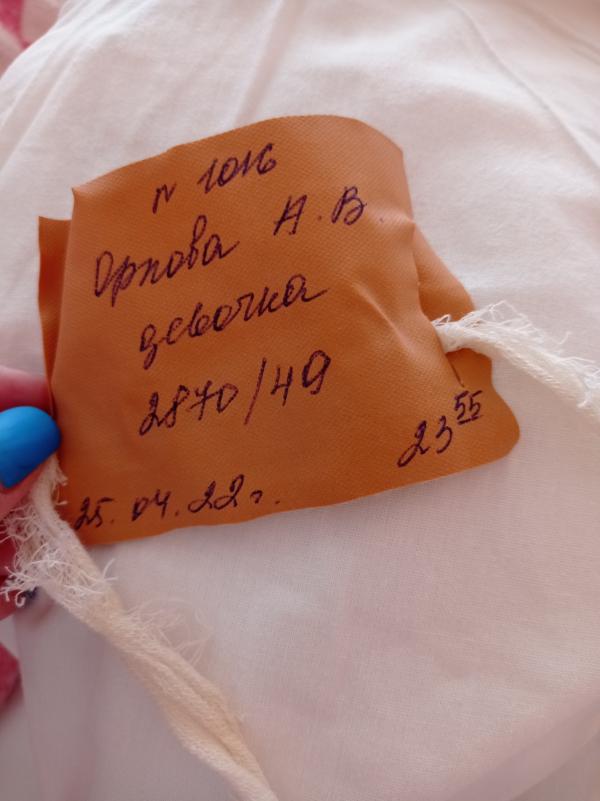 N 1016
Орлова А. В.
девочка
2870/49
23 55
25. 04. 22 г.